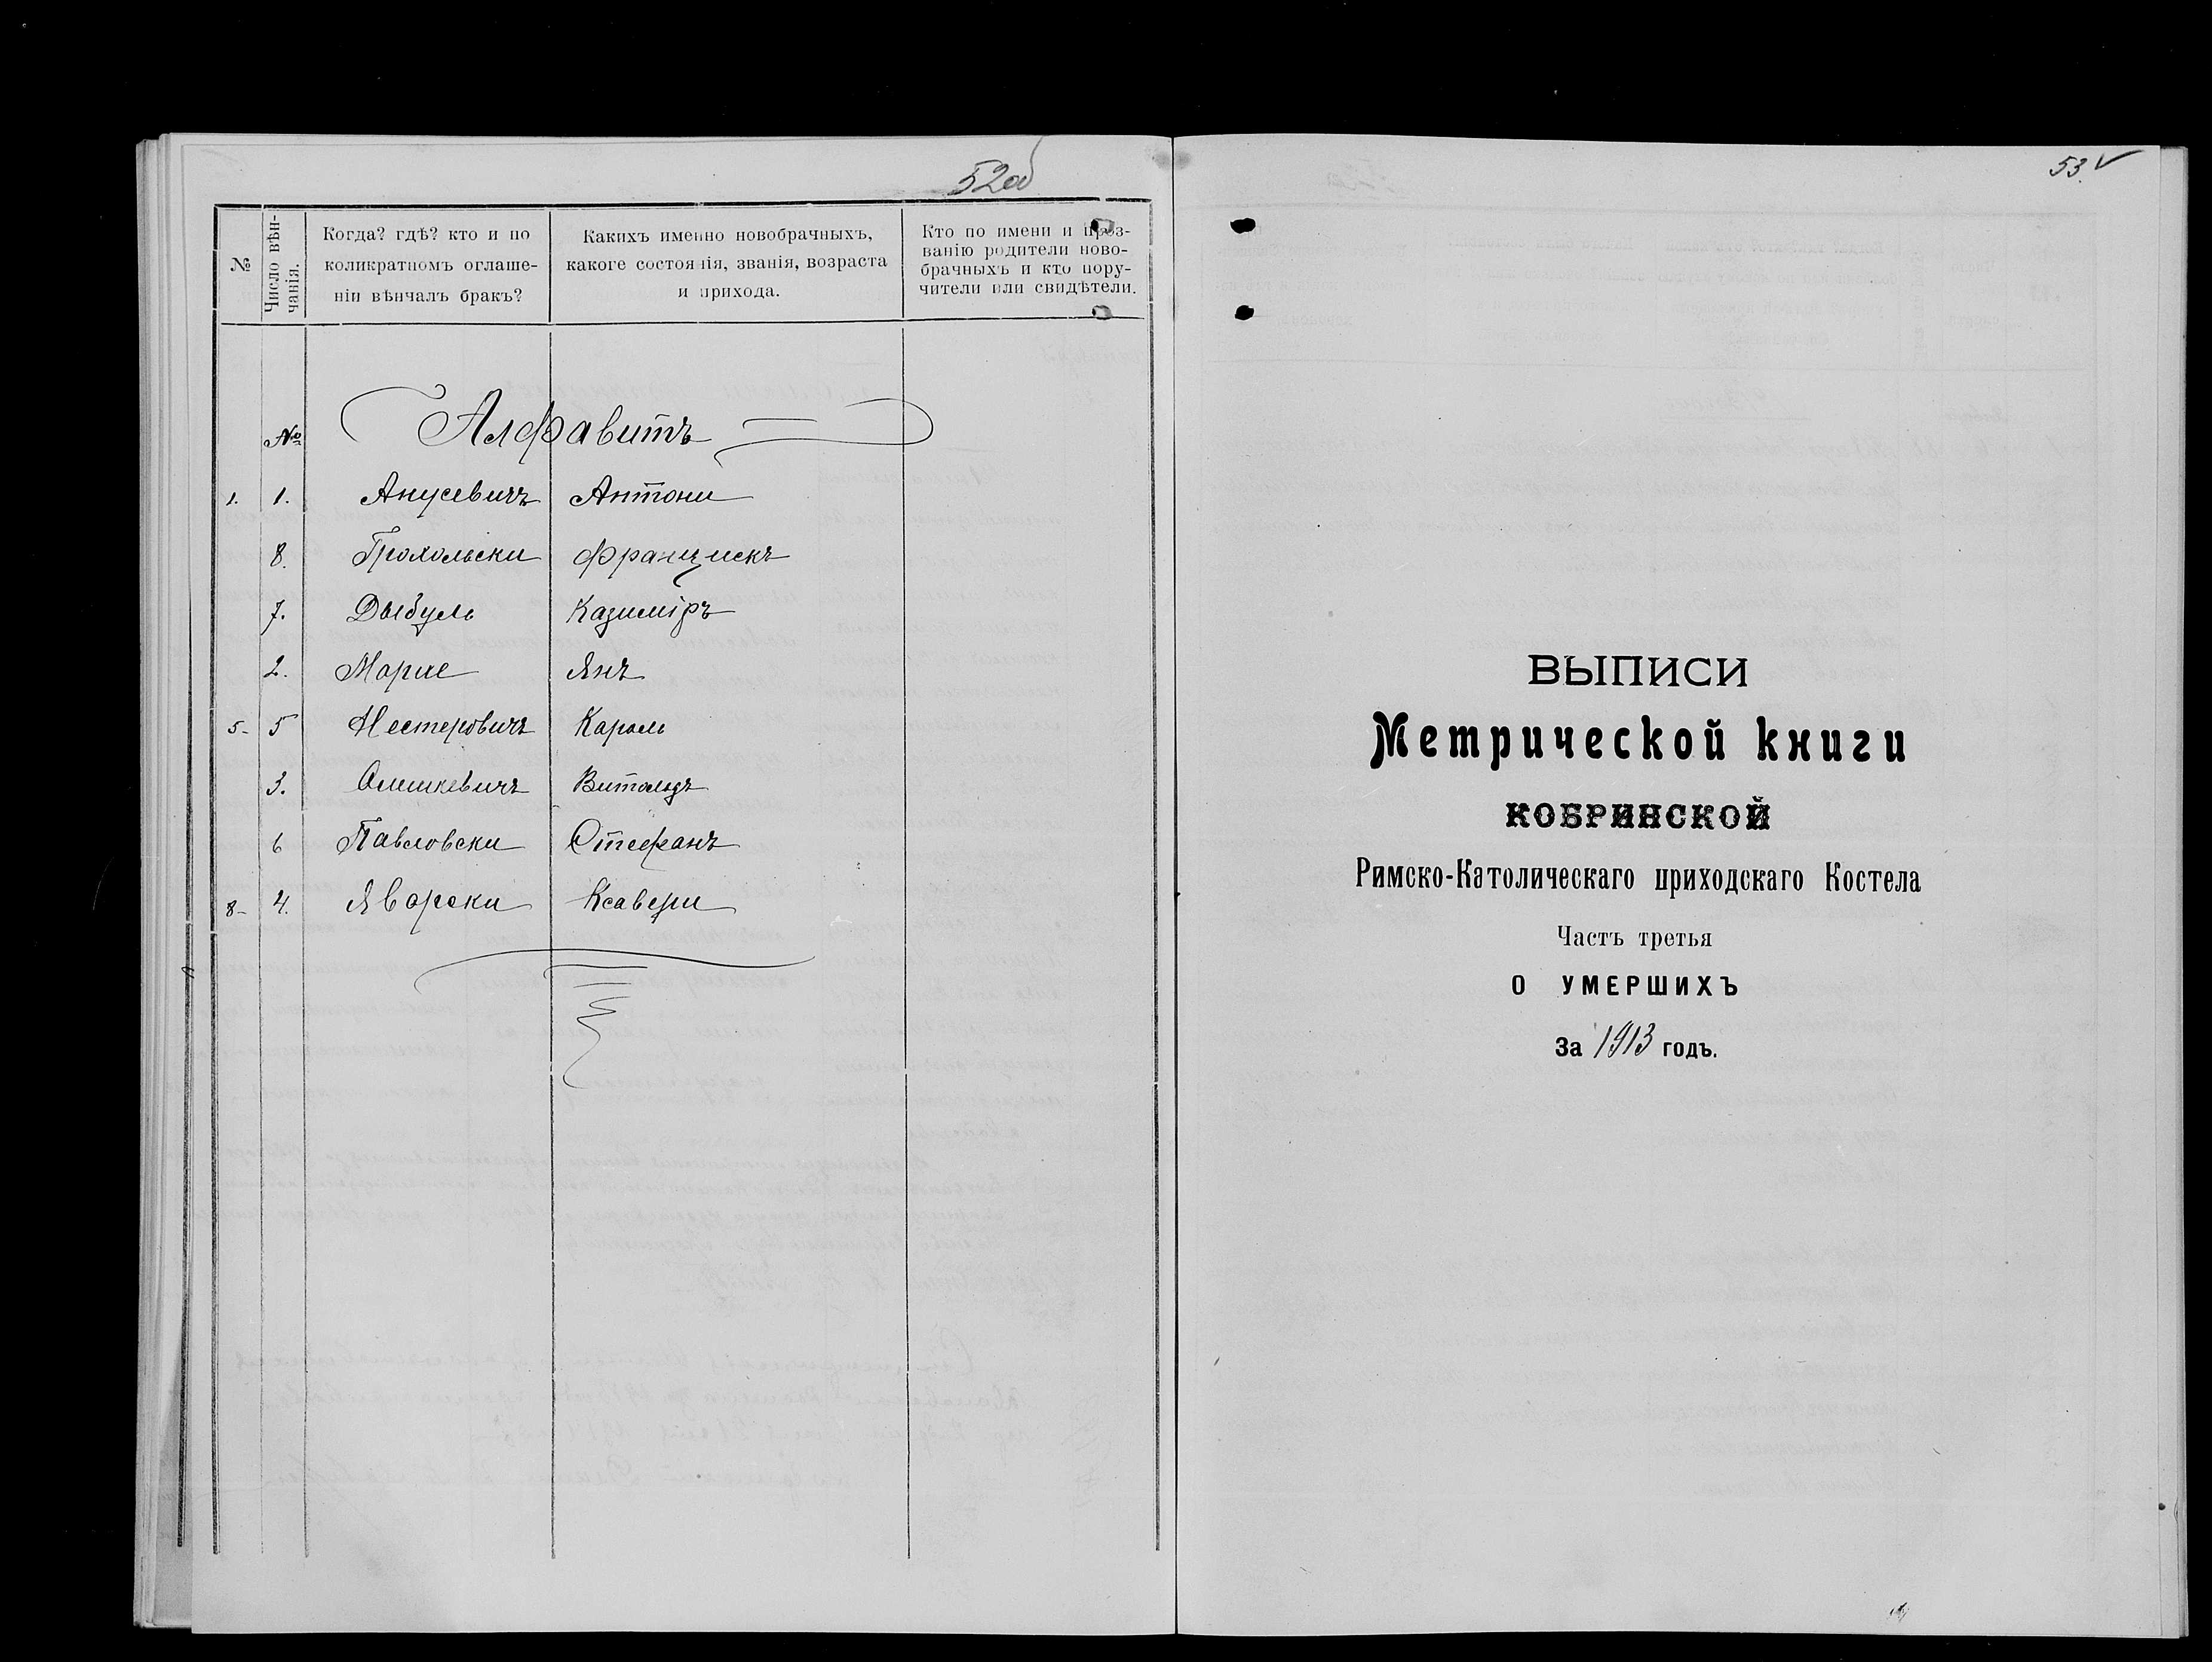 52об
№
Число вѣн-
чанія.
Когда? гдѣ? кто и по
коликратномъ оглаше-
ніи вѣнчалъ бракъ?
Какихъ именно новобрачныхъ,
какоге состоянія, званія, возраста
и прихода.
Кто по имени и проз-
ванію родители ново-
брачныхъ и кто пору-
чители или свидѣтели.
№ Алфавитъ
1. 1. Анусевичъ Антони
8. Грохольски Францискъ
7. Дыбуль Казиміръ
2. Марие Янъ
5- 5 Нестеровичъ Кароль
3. Олешкевичъ Витольдъ
6 Павловски Стефанъ
8- 4. Яворски Ксавери
53.
ВЫПИСИ
Метрической книги
КОБРИНСКОЙ
Римско-Католическаго приходскаго Костела
Часть третья
О УМЕРШИХЪ
За 1913 годъ.